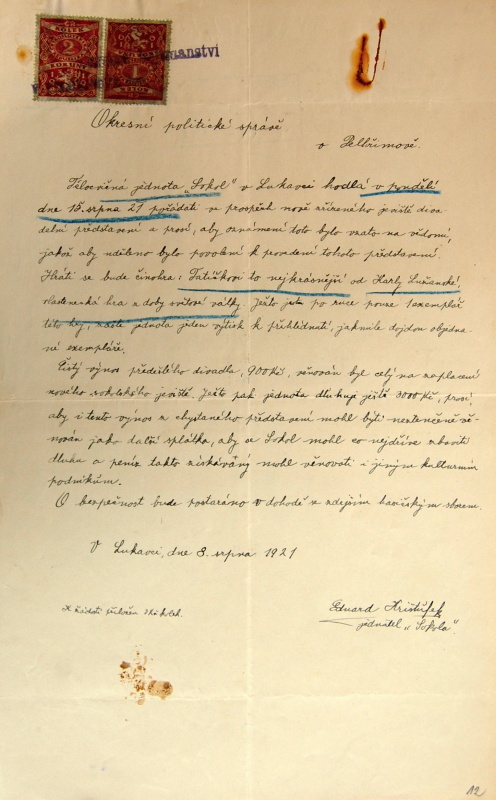 KOLEK
2
KORUNY
KOLEK
1
Okresní politické správě
v Pelhřimově.
Tělocvičná jednota „Sokol" v Lukavci hodlá v pondělí
dne 15. srpna 21 pořádati ve prospěch nově zřízeného jeviště diva
delní představení a prosí, aby oznámení toto bylo vzato na vědomí,
jakož aby uděleno bylo povolení k provedení tohoto představení.
Hráti se bude činohra: Tatíčkovi to nejkrásnější od Karly Lužanské,
vlastenecká hra z doby světové války. Ježto jest po ruce pouze 1 exemplář
této hry, zašle jednota jeden výtisk k přehlédnutí, jakmile dojdou objedna
né exempláře.
Čistý výnos předešlého divadla, 900 Kč, věnován byl celý na zaplacení
nového sokolského jeviště. Ježto pak jednota dluhuje ještě 3000 Kč, prosí,
aby i tento výnos z chystaného představení mohl býti neztenčeně vě-
nován jako další splátka, aby se Sokol mohl co nejdříve zhostiti
dluhu a peníz takto získávaný mohl věnovati i jiným kulturním
podnikům.
O bezpečnost bude postaráno v dohodě se zdejším hasičským sborem.
V Lukavci, dne 8. srpna 1921
K žádosti přiložen 2 Kč kolek.
Eduard Krištůfek
jednatel „Sokola".
12